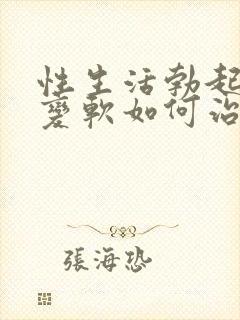 性生活勃起
變軟如何治
張海恐